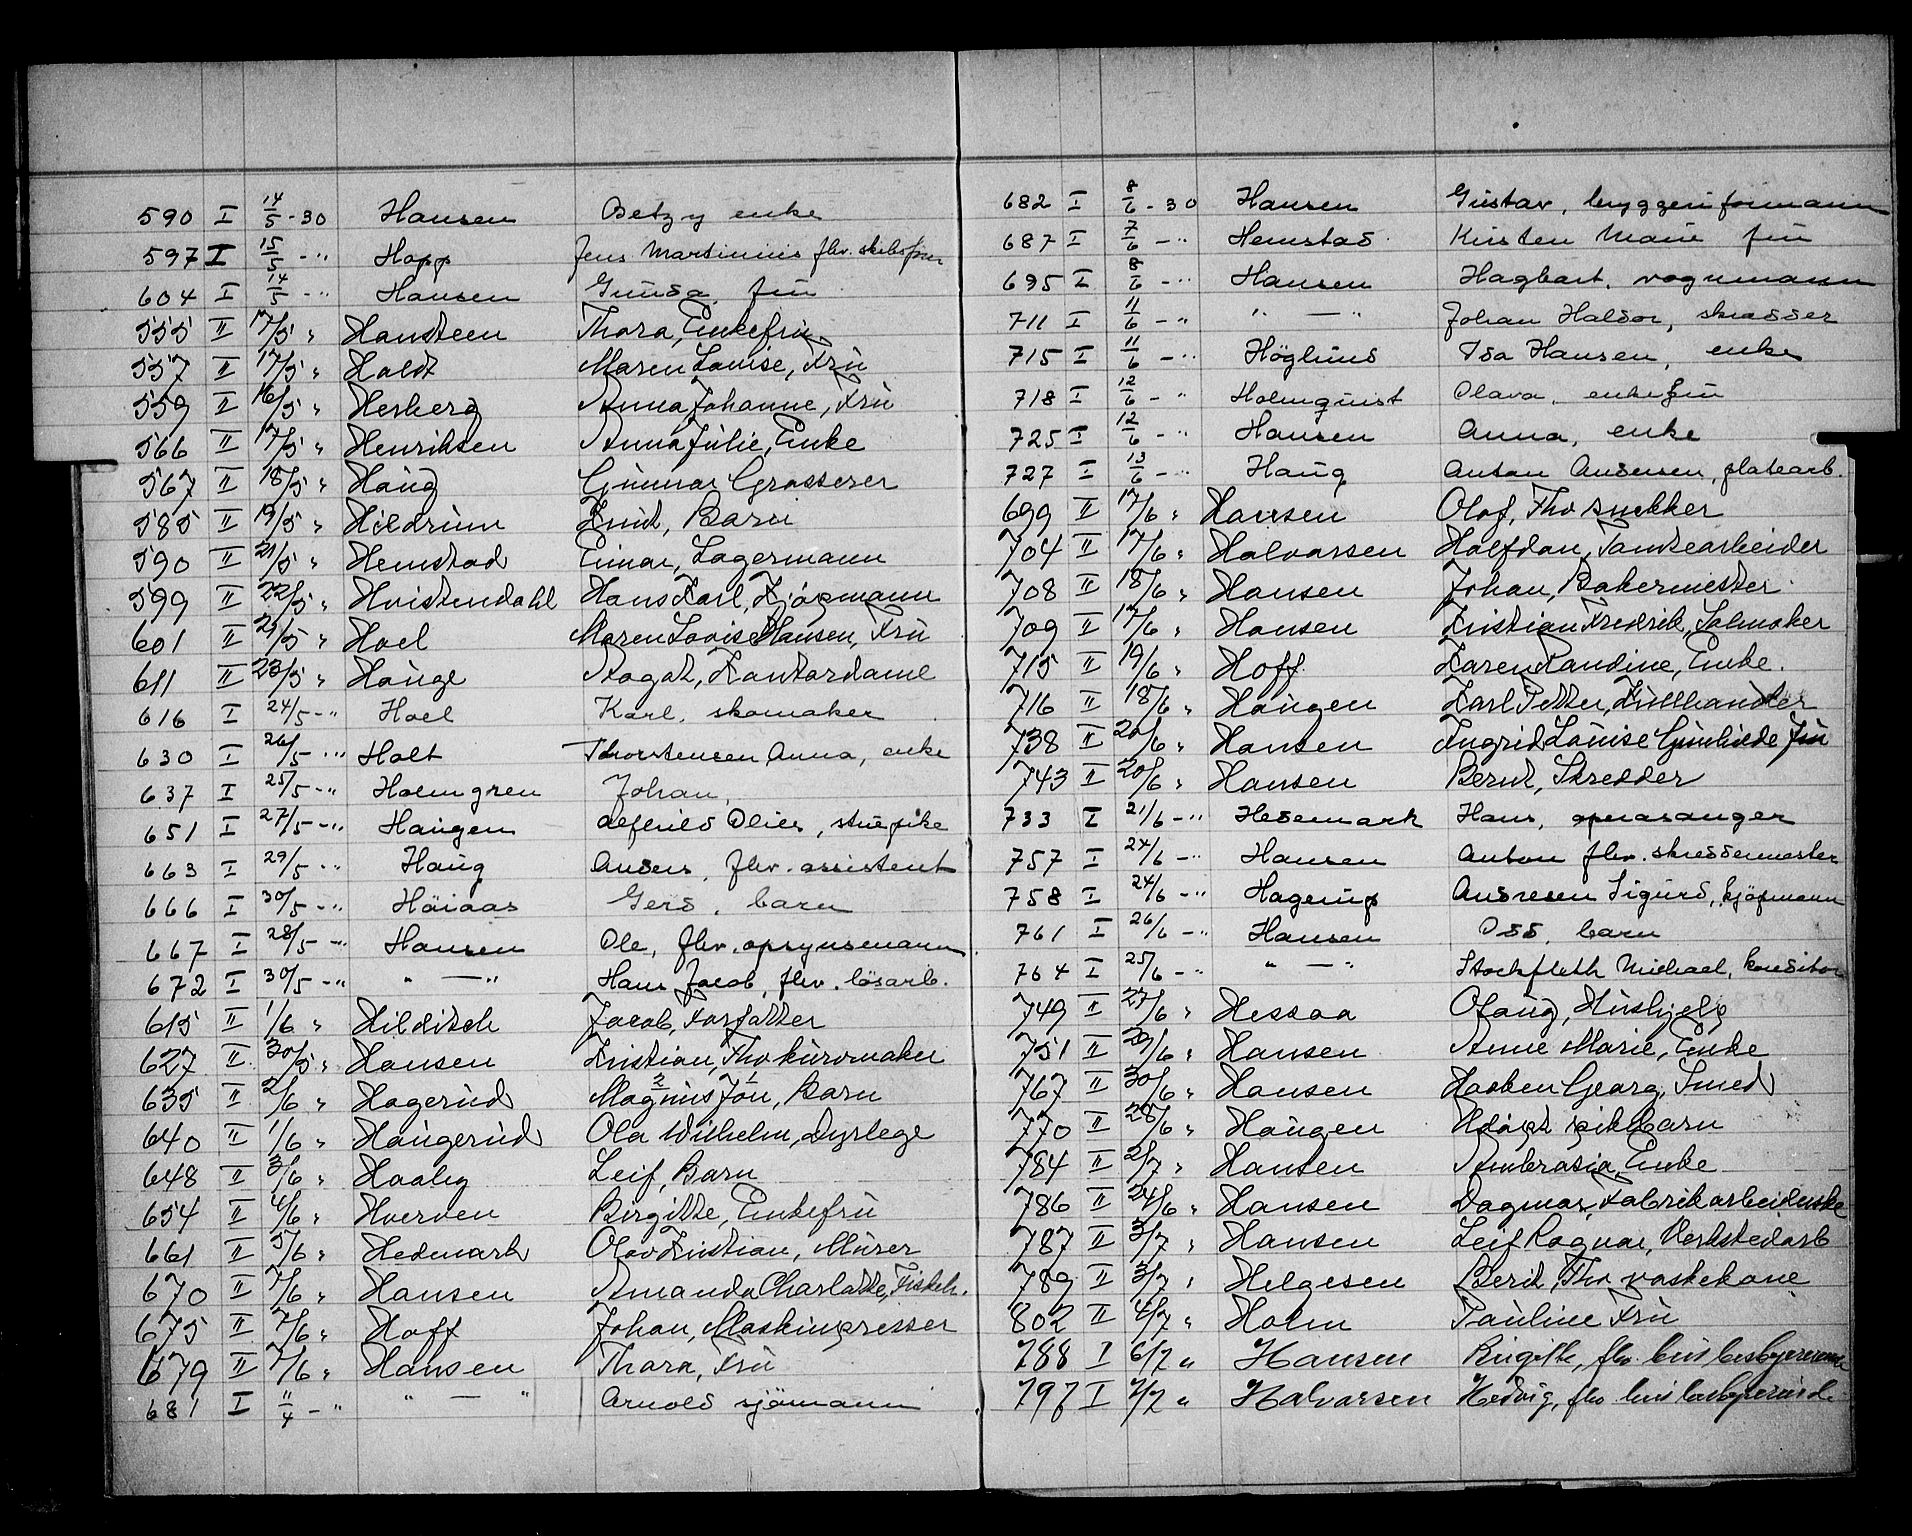 590 I 14/5 - 30 Hansen Betzy enke
597 I 15/5 - " Hopp Jens Martinius fhv. skibsfører
604 I 14/5 - " Hansen Gunda, fru
555 II 17/5 " Hansteen Thora, Enkefru
557 II 17/5 " Holdt Maren Lovise, Fru
559 II 16/5 " Herberg Anna Johanne, Fru
566 II 17/5 " Henriksen Anna Julie, Enke
567 II 18/5 " Haug Gunnar Grosserer
585 II 19/5 " Hildrum Knut, Barn
590 II 21/5 " Hemstad Einar, Lagermann
599 II 22/5 " Hvistendahl Hans Karl, Kjøpmann
601 II 21/5 " Hoel Maren Lovise Hansen, Fru
611 II 23/5 " Hauge Aagot, Kontordame
616 I 24/5 - " Hoel Karl, skomaker
630 I 26/5 - " Holt Thorstensen Anna, enke
637 I 25/5 - " Holmgren Johan,
651 I 27/5 - " Haugen Alfhild Oline, stuepike
663 I 29/5 - " Haug Anders, fhv. assistent
666 I 30/5 - " Höiaas Gerd, barn
667 I 28/5 - " Hansen Ole, fhv. opsynsmann
672 I 30/5 - " " — " Hans Jacob, fhv. lösarb.
615 II 1/6 " Hilditch Jacob, Forfatter
627 II 30/5 " Hansen Kristian, Fhv kurvmaker
635 II 2/6 " Hagerud Magnus Jon, Barn
640 II 1/6 " Haugerud Ola Wilhelm, Dyrlege
648 II 3/6 " Haaby Leif, Barn
654 II 4/6 " Hverven Birgitte, Enkefru
661 II 5/6 " Hedmark Olav Kristian, Murer
670 II 7/6 " Hansen Amanda Charlotte, Fiskeh.
675 II 7/6 " Hoff Johan, Maskinpresser
679 II 7/6 " Hansen Thora, Fru
681 I 11/4 - " " — " Arnold sjömann
682 I 8/6 - 30 Hansen Gustav, bryggeriformann
687 I 7/6 - " Hemstad Kirsten Marie fru
695 I 8/6 - " Hansen Hagbart, vognmann
711 I 11/6 - " " — " Johan Haldor, skredder
715 I 11/6 - " Höglund Ida Hansen, enke
718 I 12/6 - " Holmquist Olava, enkefru
725 I 12/6 - " Hansen Anna, enke
727 I 13/6 - " Haug Anton Andersen, platearb.
699 II 17/6 " Hansen Olof, Fhv snekker
704 II 17/6 " Halvorsen Halfdan, Tomtearbeider
708 II 18/6 " Hansen Johan, Bakermester
709 II 17/6 " Hansen Kristian Fredrik, Salmaker
715 II 19/6 " Hoff Karen Randine, Enke.
716 II 18/6 " Haugen Karl Petter, Kullhandler
738 II 20/6 " Hansen Ingrid Louise Gunhilde Fru
743 II 20/6 " Hansen Bernt, Skredder
733 I 21/6 - " Hedemark Hans, operasanger
757 I 24/6 - " Hansen Anton fhv. skreddermester
758 I 24/6 - " Hagerup Andresen Sigurd, kjøpmann
761 I 26/6 - " Hansen Odd, barn
764 I 25/6 - " " — " Stockfleth Michael, konditor
749 II 27/6 " Hessaa Olaug, Hushjelp
751 II 29/6 " Hansen Anne Marie, Enke
767 II 30/6 " Hansen Haaken Georg, Smed
770 II 28/6 " Haugen Udøpt pikebarn
784 II 2/7 " Hansen Ambrosia, Enke
786 II 24/6 " Hansen Dagmar, Fabrikarbeiderske
787 II 3/7 " Hansen Leif Ragnar, Verkstedarb
789 II 3/7 " Helgesen Berit, Fhv vaskekone
802 II 4/7 " Holm Pauline Fru
788 I 6/7 " Hansen Birgitte, fhv.
797 I 7/7 " Halvorsen Hedvig, fhv